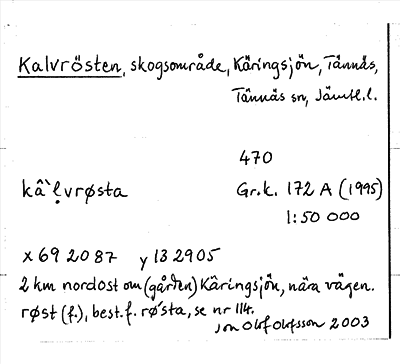 Kalvrösten, skogsområde, Käringsjön, Tännäs,
Tännäs sn, Jämtl.l.
470
kâ`ḷvrøsta
Gr.k. 172 A (1995)
1:50 000
x 69 20 87 y 13 29 05
2 km nordost om (gården) Käringsjön, nära vägen.
røst (f.), best.f. rø´sta, se nr 114.
Jon Olof Olofsson 2003